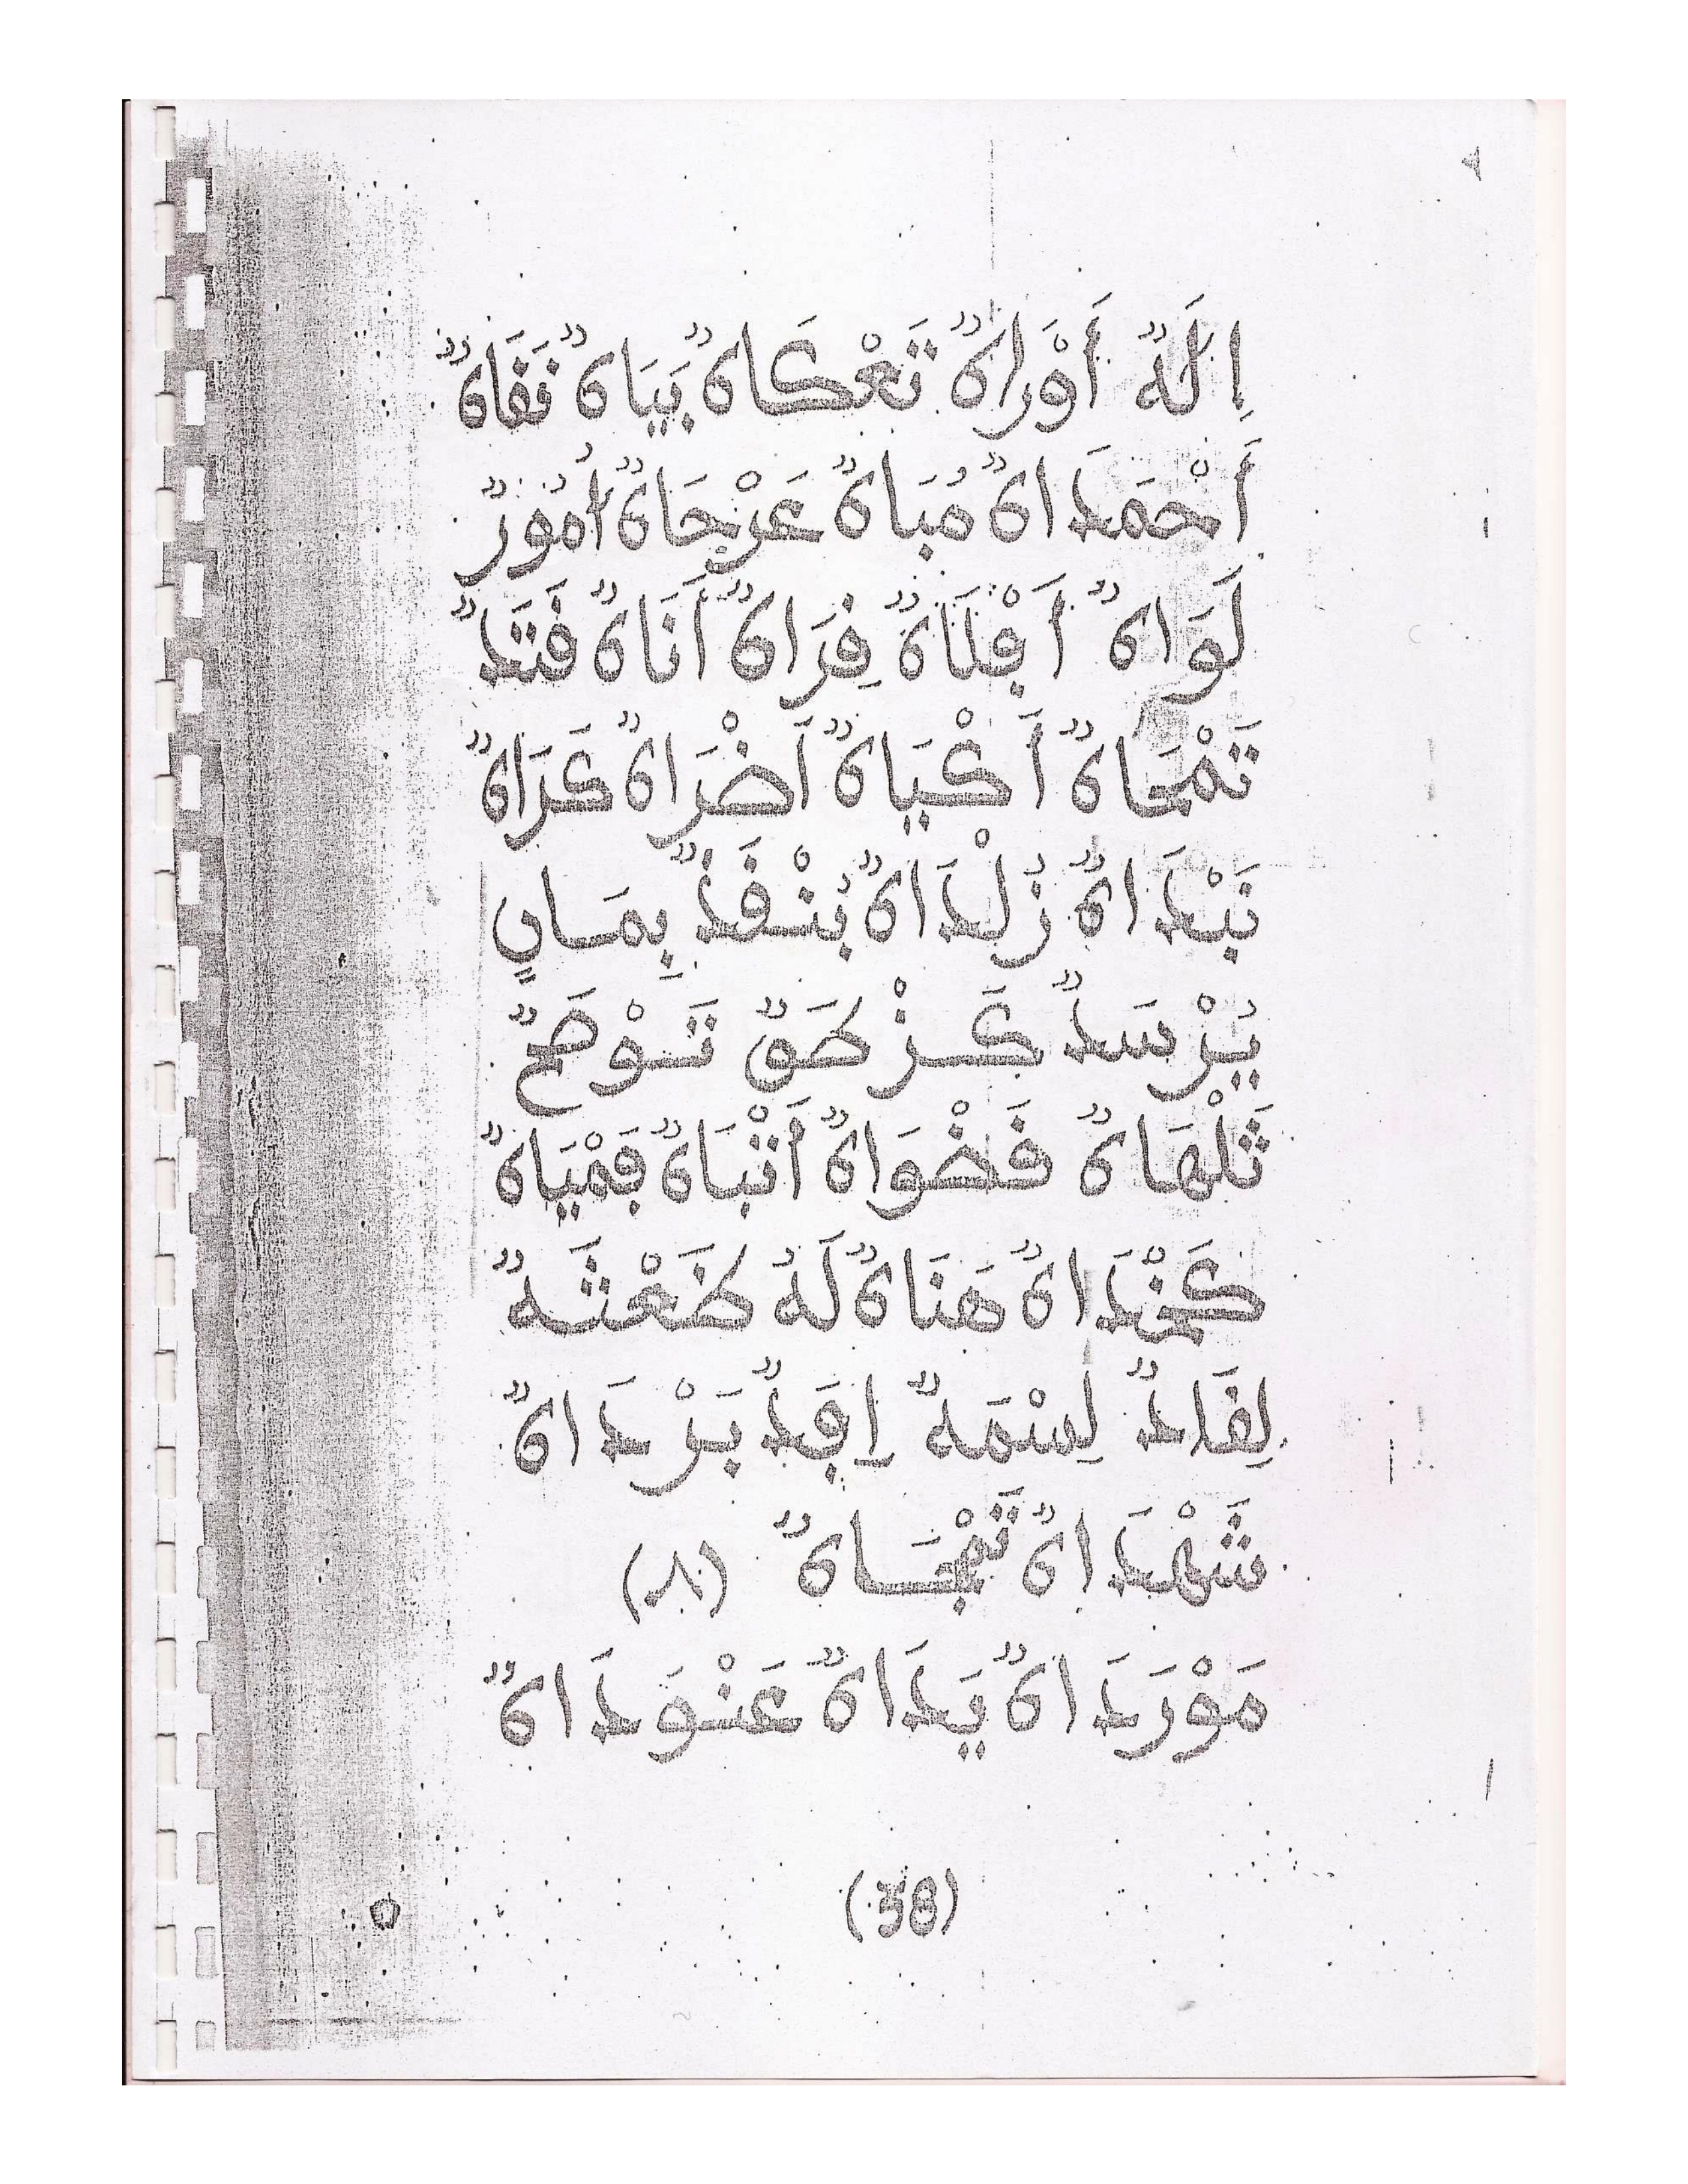 اِلَهٌ أَوْرَاهٌ تَعْكَاهٌ بَيَاهٌ نَفَاهٌ
أَحْمَدَاهٌ مُبَاهٌ عَرْجَاهٌ أُمُورٌ
لَوَاهٌ أَفْلَاهٌ فِرَاهٌ أَنَاهٌ فَتَدٌ
تَمْحَاهٌ أَكْيَاهٌ أَضْرَاهٌ كَرَاهٌ
نَبْدَاهٌ زُلْدَاهٌ بُنْفَذٌ بِمَسَايٍ
يُرْسَدٌ كَزْطَقٌ تَوْصَحٌ
ثَلْهَاهٌ فَضْوَاهٌ أَتْبَاهٌ فَمْيَاهٌ
كَمْخَدَاهٌ هَنَاهٌ لَهُ طَعْثَهٌ
لِفَادٌ لِسْمَهٌ اِفَدٌ بَرْدَاهٌ
شَهْدَاهٌ تَهْجَسَاهٌ (٨)
مَوْرَدَاهٌ يَدَاهٌ عَنْوَدَاهٌ
(38)